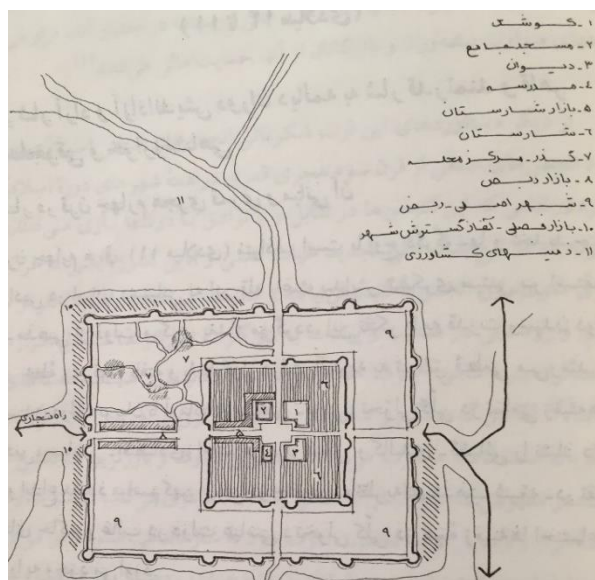 ۱- کوشک
۲- مسجد جامع
۳- دیوان
۴- مدرسه
۵- بازار شارستان
۶- شارستان
۷- گذر - مرکز محله
۸- بازار ربض
۹- شهر اصلی - ربض
۱۰- بازار فصلی - آغاز گسترش شهر
۱۱- زمینهای کشاورزی
۱۱
۱۰
۹
۷
۶
۲
۱
راه تجاری
۸
۵
۱۰
۴
۳
۶
۹
۹